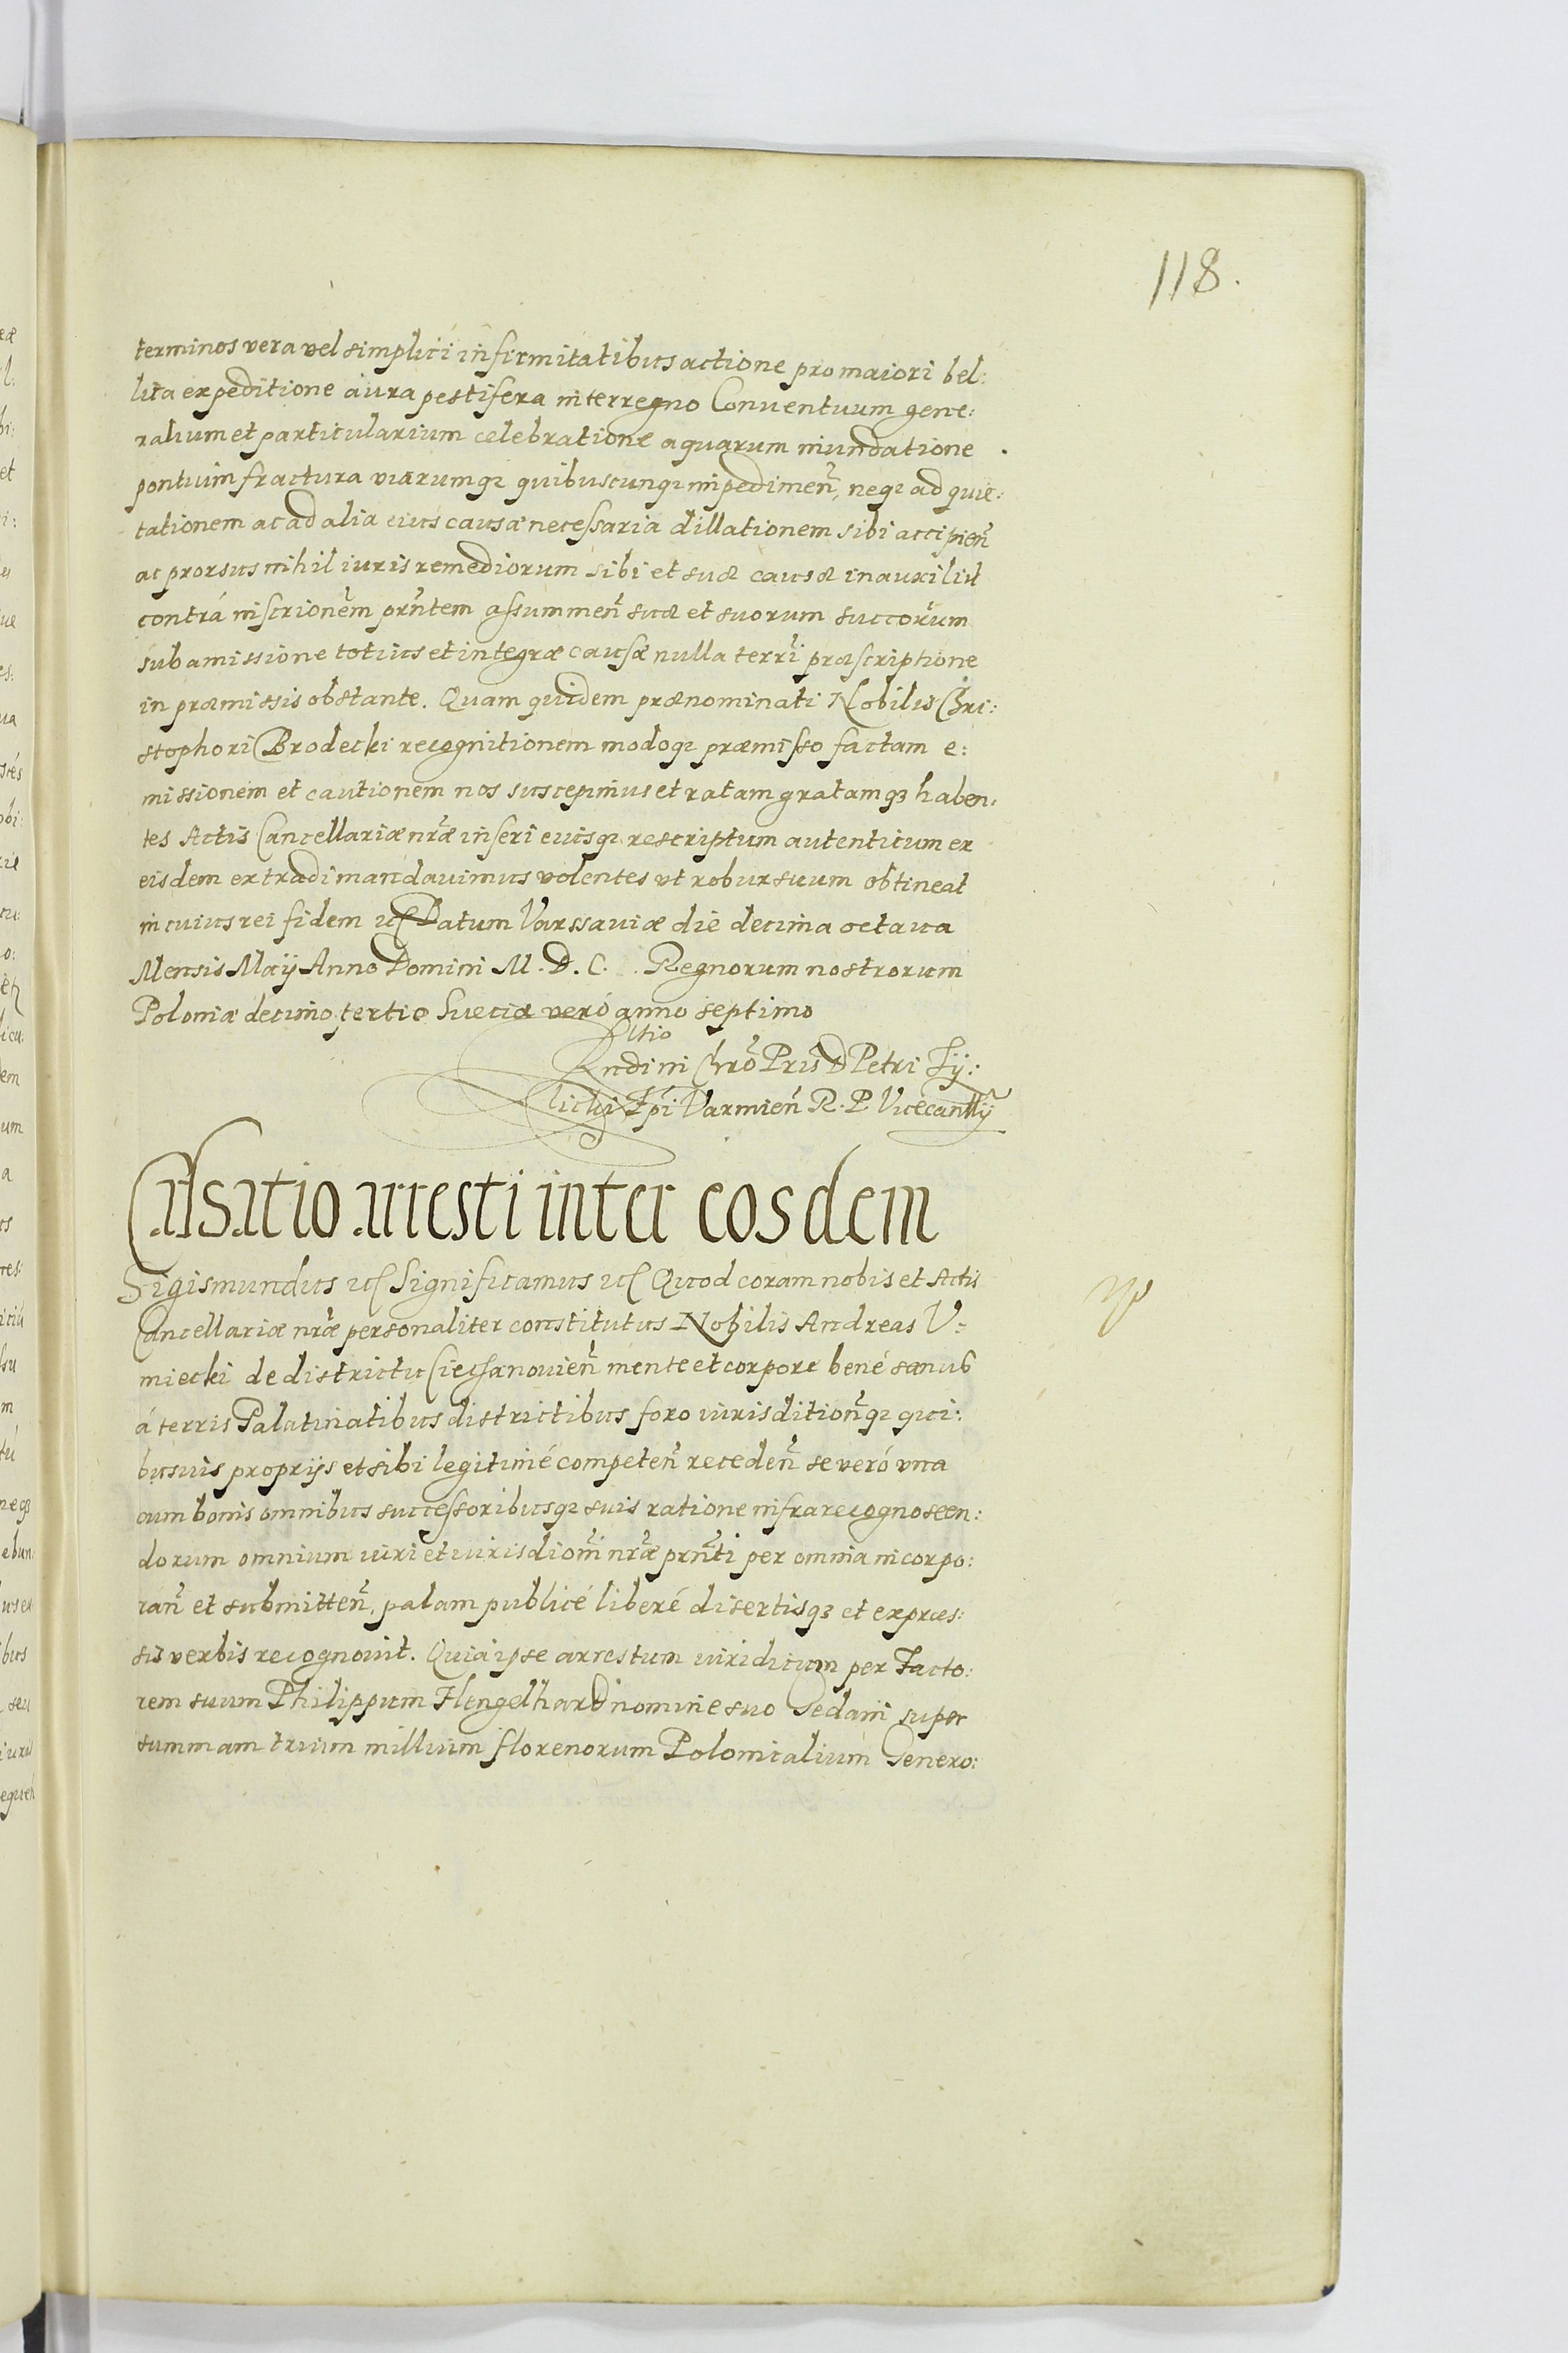 118.
terminos vera vel simplici infirmitatibus actione pro maiori bel:
lica expeditione aura pestifera interregno Conuentuum gene:
ralium et particularium celebratione aquarum inundatione
pontium fractura viarumqȝ quibuscunqȝ impedimeñ, neqȝ ad quie:
tationem ac ad alia eius causæ necessaria dillationem sibi accipieñ
ac prorsus nihil iuris remediorum sibi et suæ causæ in auxiliũ
contrá inscrionẽm prñtem assummeñ suæ et suorum succorũm
sub amissione totius et integræ causæ nulla terrĩ præscriptione
in præmissis obstante. Quam quidem prænominati Nobilis Chri:
stophori Brodecki recognitionem modoqȝ præmisso factam e:
missionem et cautionem nos suscepimus et ratam gratamqȝ haben:
tes Actis Cancellariæ nrãe inseri eiusqȝ rescriptum autenticum ex
eisdem extradi mandauimus volentes vt robur suum obtineat
in cuius rei fidem ec Datum Varssauiæ die decima octaua
Mensis Maij Anno Domini M. D. C. Regnorum nostrorum
Poloniæ decimo tertio Sueciæ veró anno septimo
Rltio
Rndi in Chrõ Pris D Petri Ty:
licki Epi Varmieñ R. P. Vicecancllij
Cassatio arresti inter eosdem
Sigismundus ec Significamus ec Quod coram nobis et Actis
Cancellariæ nrãe personaliter constitutus Nobilis Andreas V:
miecki de districtu Ciechanouieñ mente et corpore bené sanus
á terris Palatinatibus districtibus foro iurisditioñqȝ qui:
busuis proprijs et sibi legitimé competeñ recedeñ se veró vna
cum bonis omnibus successoribusqȝ suis ratione infrarecognoscen:
dorum omnium iuri et iurisdiomĩ nrãe prñti per omnia incorpo:
rañ et submitteñ, palam publicé liberé disertisqȝ et expræs:
sis verbis recognouit. Quia ipse arrestum iuridicum per Facto:
rem suum Philippum Hengelhard nomine suo Gedani super
summam trium millium florenorum Polonicalium Genero: